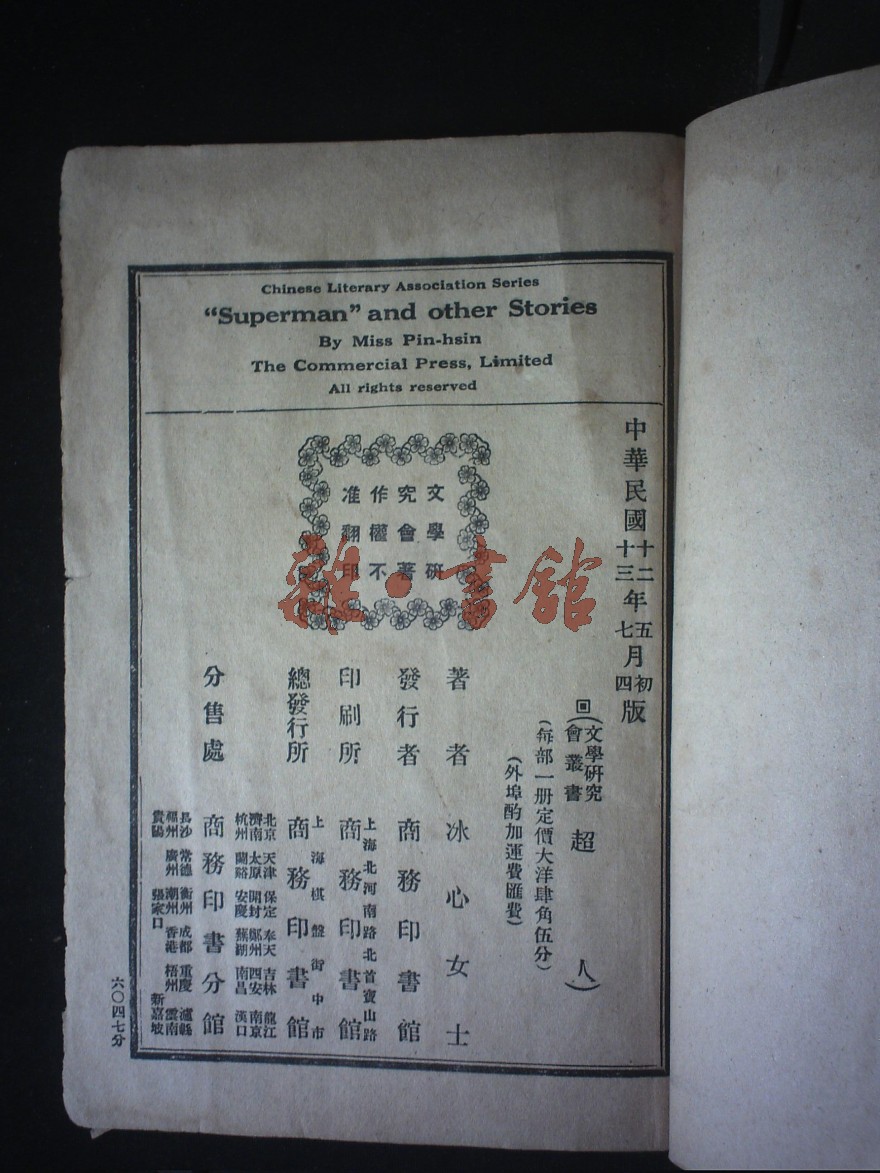 Chinese Literary Association Series
"Superman" and other Stories
By Miss Pin-hsin
The Commercial Press, Limited
All rights reserved
中華民國十二年五月初版
十三年七月四版
(文學研究會叢書)超人)
(每部一册定價大洋肆角伍分)
(外埠酌加運費匯費)
文學研
究會著
作權不
准翻印
著者 冰心女士
發行者 商務印書館
印刷所 上海北河南路北首寶山路 商務印書館
總發行所 上海棋盤街中市 商務印書館
分售處 商務印書分館
北京 天津 保定 奉天 吉林 龍江
濟南 太原 開封 鄭州 西安 南京
杭州 蘭谿 安慶 蕪湖 南昌 漢口
長沙 常德 衡州 成都 重慶 瀘縣
福州 廣州 潮州 香港 梧州 雲南
貴陽 張家口 新嘉坡
六〇四七分
雜·書館